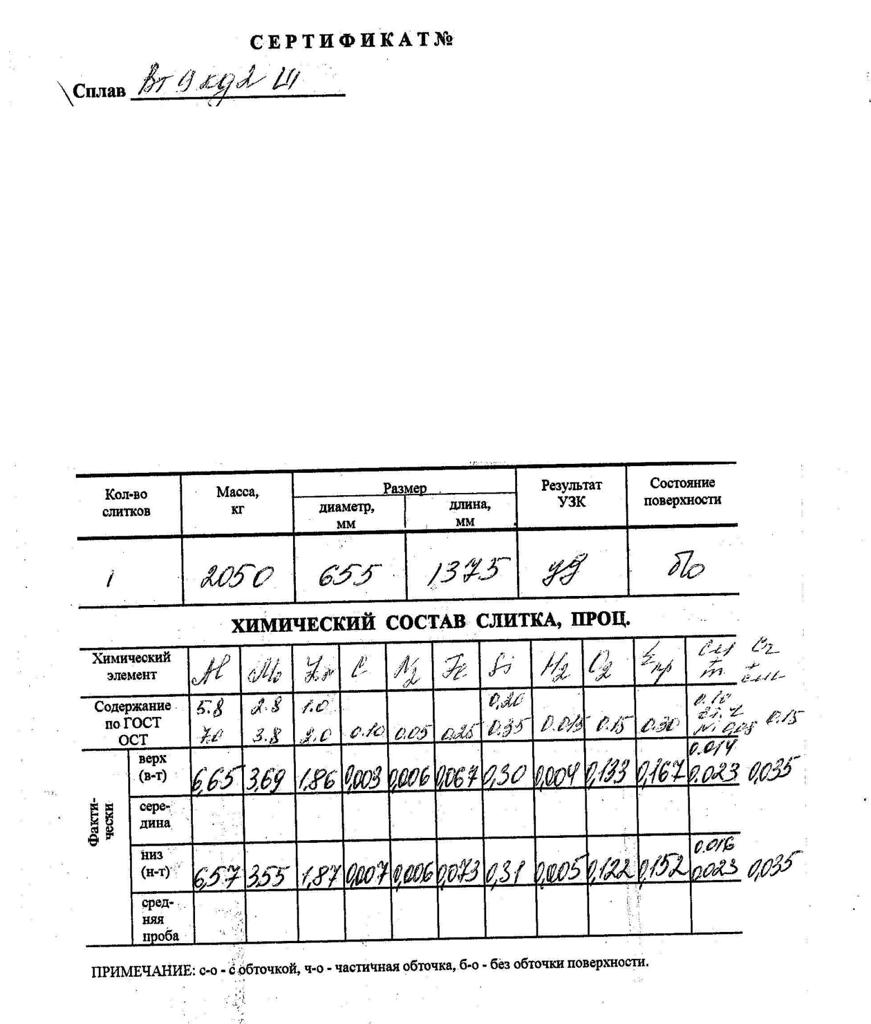 СЕРТИФИКАТ №
Сплав Вт 9 кд 2 Ш
Кол-во слитков Масса, кг Размер Результат УЗК Состояние поверхности
диаметр, мм длина, мм
1 2050 655 1375 уд б/о
ХИМИЧЕСКИЙ СОСТАВ СЛИТКА, ПРОЦ.
Химический элемент Al Mo Zr C N2 Fe Si H2 O2 Σпр
Содержание по ГОСТ ОСТ
5.8 2.8 1.0 0,20 0.10
7.0 3.8 2.0 0.10 0.05 0.25 0.35 0.015 0.15 0.30 Ni 0,08 0.15
Факти-чески
0.014
верх (в-т) 6,65 3,69 1,86 0,003 0,006 0,067 0,30 0,004 0,133 0,167 0.023 0,035
сере-дина
0.016
низ (н-т) 6,57 3,55 1,87 0,007 0,006 0,073 0,31 0,005 0,122 0,152 0.023 0,035
сред-няя проба
ПРИМЕЧАНИЕ: с-о - с обточкой, ч-о - частичная обточка, б-о - без обточки поверхности.